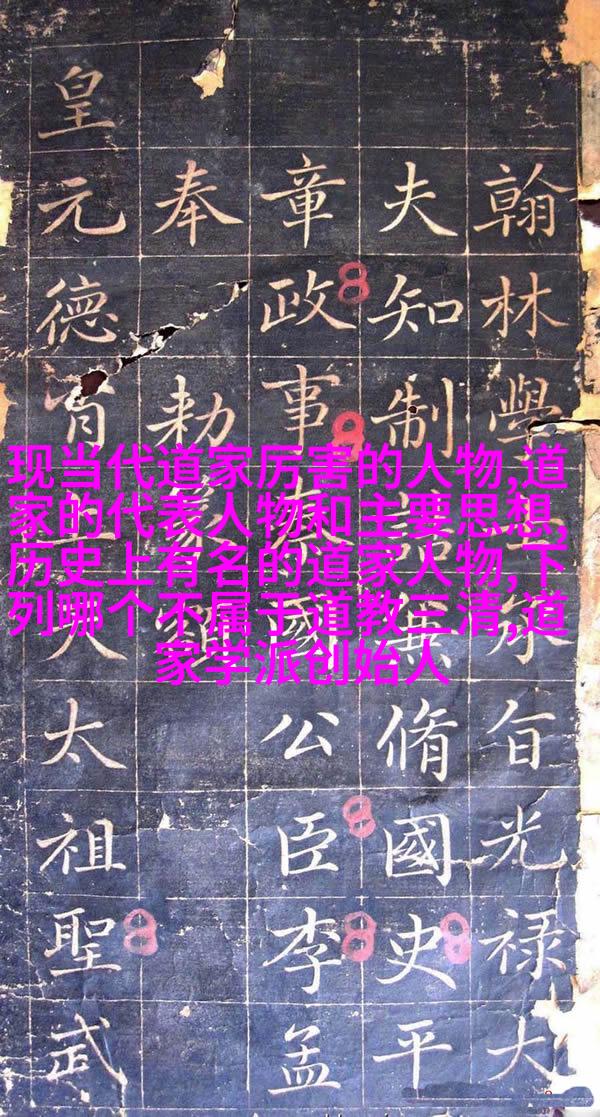 现当代道家厉害的人物,道
家的代表人物和主要思想,
历史上有名的道家人物,下
列哪个不属于道教三清,道
家学派创始人
翰林學士承旨光禄大
夫知制誥兼脩國史平
章政事秦國公臣李孟
奉勅篆額
皇元德太祖聖武